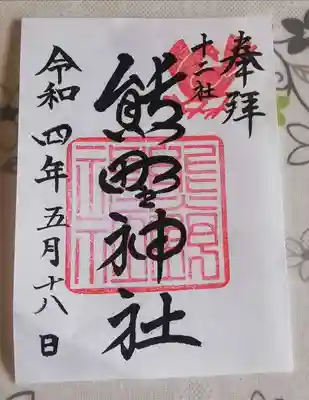 奉拝
十二社
熊野神社
令和四年五月十八日